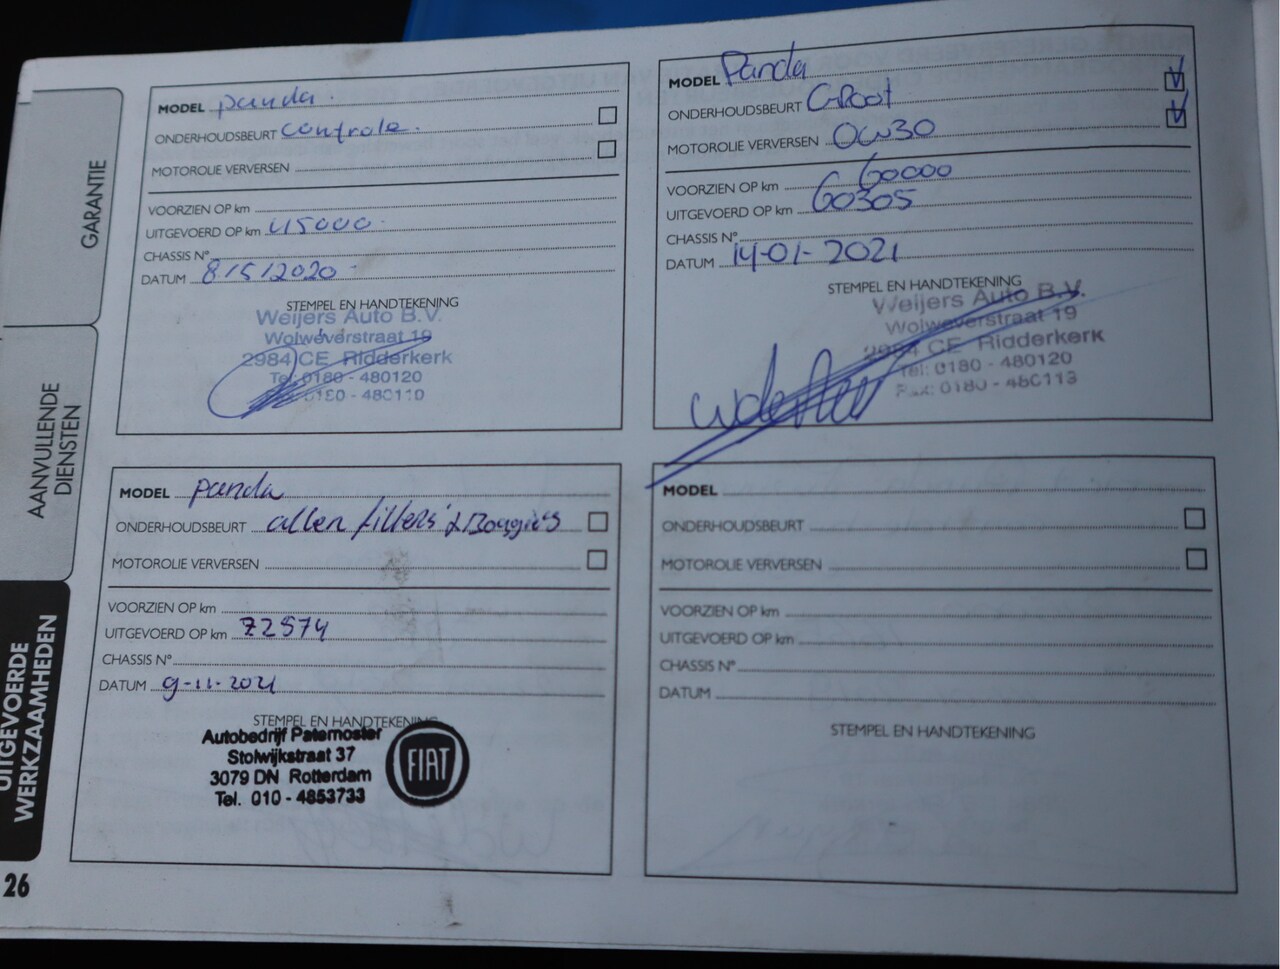 GARANTIE
AANVULLENDE
DIENSTEN
UITGEVOERDE
WERKZAAMHEDEN
26
MODEL panda.
ONDERHOUDSBEURT controle.
MOTOROLIE VERVERSEN
VOORZIEN OP km
UITGEVOERD OP km 45000
CHASSIS N°
DATUM 8/5/2020
STEMPEL EN HANDTEKENING
Weijers Auto B.V.
Wolweverstraat 19
2984 CE Ridderkerk
Tel: 0180 - 480120
0180 - 480110
MODEL Panda
ONDERHOUDSBEURT Groot
MOTOROLIE VERVERSEN 0W30
VOORZIEN OP km 60000
UITGEVOERD OP km 60305
CHASSIS N°
DATUM 14-01-2021
STEMPEL EN HANDTEKENING
Weijers Auto B.V.
Wolweverstraat 19
2984 CE Ridderkerk
Tel: 0180 - 480120
Fax: 0180 - 480113
MODEL panda
ONDERHOUDSBEURT allen filters & Bougies
MOTOROLIE VERVERSEN
VOORZIEN OP km
UITGEVOERD OP km 72574
CHASSIS N°
DATUM 9-11-2021
STEMPEL EN HANDTEKENING
Autobedrijf Paternoster
Stolwijkstraat 37
3079 DN Rotterdam
Tel. 010 - 4853733
FIAT
MODEL
ONDERHOUDSBEURT
MOTOROLIE VERVERSEN
VOORZIEN OP km
UITGEVOERD OP km
CHASSIS N°
DATUM
STEMPEL EN HANDTEKENING